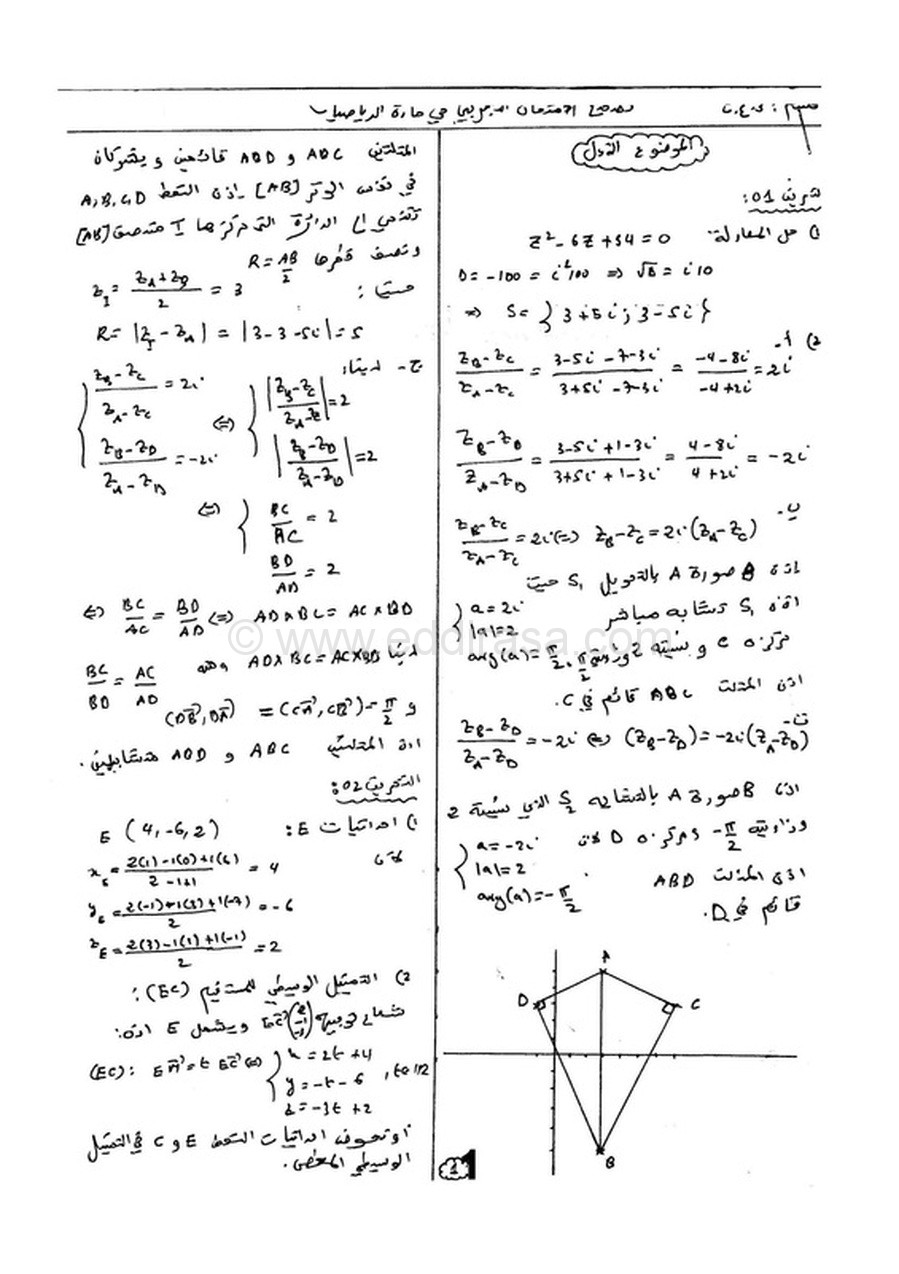 تصحيح الامتحان التجريبي في مادة الرياضيات
الموضوع الأول
تمرين 01:
1) حل المعادلة z² - 6z + 34 = 0
D = -100 = i²100 ⇒ √D = i10
⇒ S = {3+5i ; 3-5i}
2) أ- (z_B - z_C)/(z_A - z_C) = (3-5i-7-3i)/(3+5i-7-3i) = (-4-8i)/(-4+2i) = 2i
(z_B - z_D)/(z_A - z_D) = (3-5i+1-3i)/(3+5i+1-3i) = (4-8i)/(4+2i) = -2i
ب- (z_B - z_C)/(z_A - z_C) = 2i ⇔ z_B - z_C = 2i(z_A - z_C)
اذن B صورة A بالتحويل S₁ حيث
S₁ تشابه مباشر { a = 2i
|a| = 2
arg(a) = π/2
مركزه C و نسبته 2 وزاويته π/2.
اذن المثلث ABC قائم في C.
ت- (z_B - z_D)/(z_A - z_D) = -2i ⇔ (z_B - z_D) = -2i(z_A - z_D)
اذن B صورة A بالتشابه S₂ الذي نسبته 2
وزاويته -π/2 ومركزه D لأن { a = -2i
|a| = 2
arg(a) = -π/2
اذن المثلث ABD
قائم في D.
A
D
C
B
1
المثلثين ABC و ABD قائمين و يشتركان
في نفس الوتر [AB] إذن النقط A,B,C,D
تنتمي إلى الدائرة التي مركزها I منتصف [AB]
ونصف قطرها R = AB/2
حسابيا : z_I = (z_A + z_B)/2 = 3
R = |z_I - z_A| = |3-3-5i| = 5
ج- لدينا:
{ (z_B - z_C)/(z_A - z_C) = 2i
(z_B - z_D)/(z_A - z_D) = -2i
⇔ { |(z_B - z_C)/(z_A - z_C)| = 2
|(z_B - z_D)/(z_A - z_D)| = 2
⇔ { BC/AC = 2
BD/AD = 2
⇔ BC/AC = BD/AD ⇔ AD×BC = AC×BD
لدينا AD×BC = AC×BD ومنه BC/BD = AC/AD
و (DB, DA) = (CA, CB) = π/2
اذن المثلثين ABC و ABD متشابهين.
التمرين 02:
1) احداثيات E : E(4, -6, 2)
لأن x_E = (2(1)-1(0)+1(6))/(2-1+1) = 4
y_E = (2(-1)-1(3)+1(-7))/2 = -6
z_E = (2(3)-1(1)+1(-1))/2 = 2
2) التمثيل الوسيطي للمستقيم (EC) :
شعاع توجيهه EC(2 -1 -3) ويشمل E اذن:
(EC): EM = t EC ⇔ { x = 2t + 4
y = -t - 6 , t∈IR
z = -3t + 2
أو نعوض احداثيات النقط E و C في التمثيل
الوسيطي المعطى.
© www.eddirasa.com